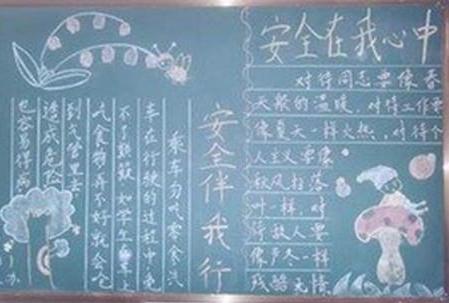 安全伴我行
乘车勿吃零食,汽
车在行驶的过程中免
不了颠簸,如学生在车上
吃食物弄不好就会吃
到气管里去
造成危险
也容易得病
安全在我心中
对待同志要像春
天般的温暖,对待工作要
像夏天一样火热,对待个
人主义要像
秋风扫落
叶一样,对
待敌人要
像严冬一样
残酷无情